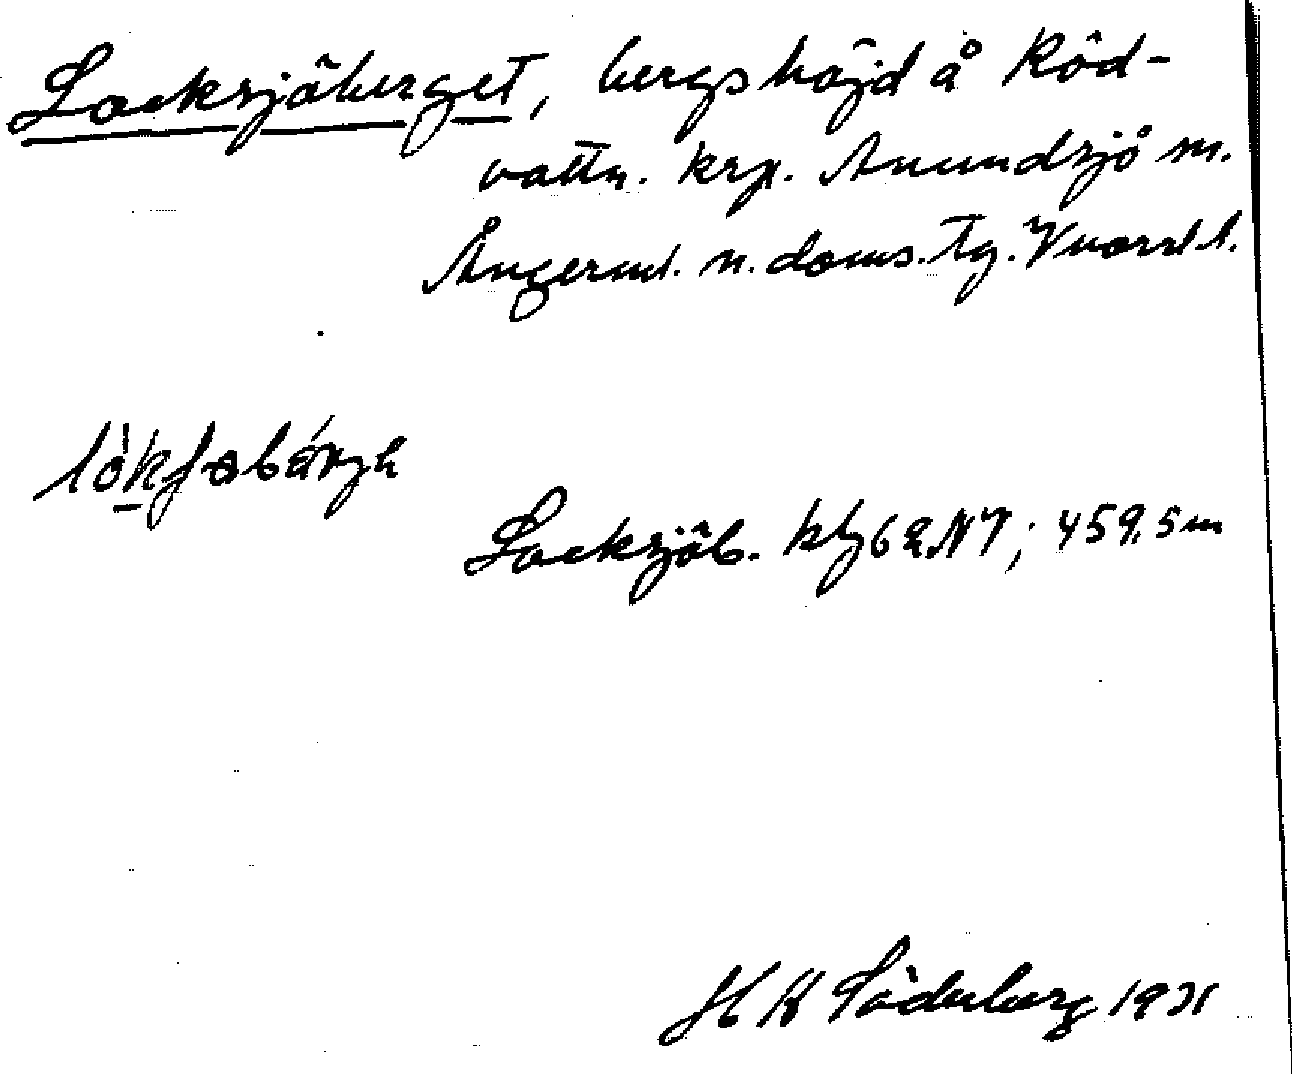 Locksjöberget, bergshöjd å Röd-
vattn. krp. Anundsjö sn.
Ångerml. n. doms. tg. Vnorrl. l.
Locksjöb. kbl 62 NV; 459.5 m
H K Söderberg 1931